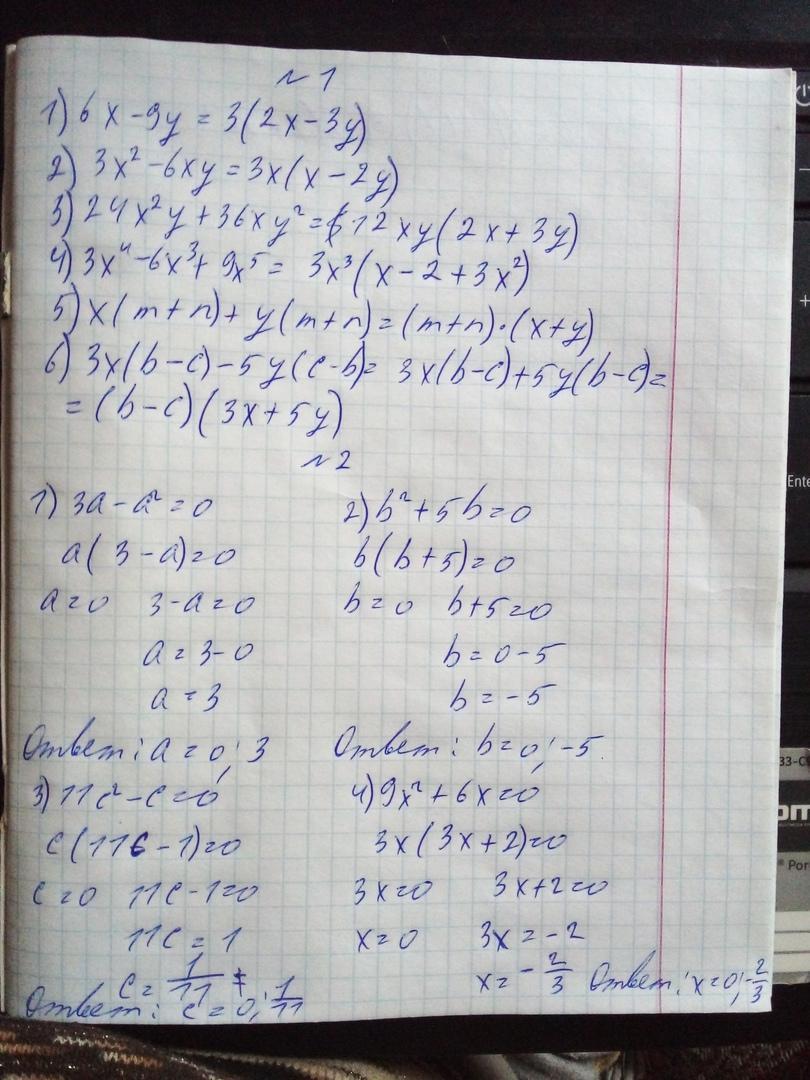 №1
1) 6x-9y = 3(2x-3y)
2) 3x²-6xy = 3x(x-2y)
3) 24x²y+36xy² = 12xy(2x+3y)
4) 3x⁴-6x³+9x⁵ = 3x³(x-2+3x²)
5) x(m+n)+y(m+n)=(m+n)·(x+y)
6) 3x(b-c)-5y(c-b)= 3x(b-c)+5y(b-c)=
=(b-c)(3x+5y)
№2
1) 3a-a²=0
a(3-a)=0
a=0 3-a=0
a=3-0
a=3
Ответ: a=0; 3
2) b²+5b=0
b(b+5)=0
b=0 b+5=0
b=0-5
b=-5
Ответ: b=0; -5.
3) 11c²-c=0
c(11c-1)=0
c=0 11c-1=0
11c=1
c=1/11
Ответ: c=0; 1/11
4) 9x²+6x=0
3x(3x+2)=0
3x=0 3x+2=0
x=0 3x=-2
x=-2/3 Ответ: x=0; -2/3
Ente
33-C
om
Por